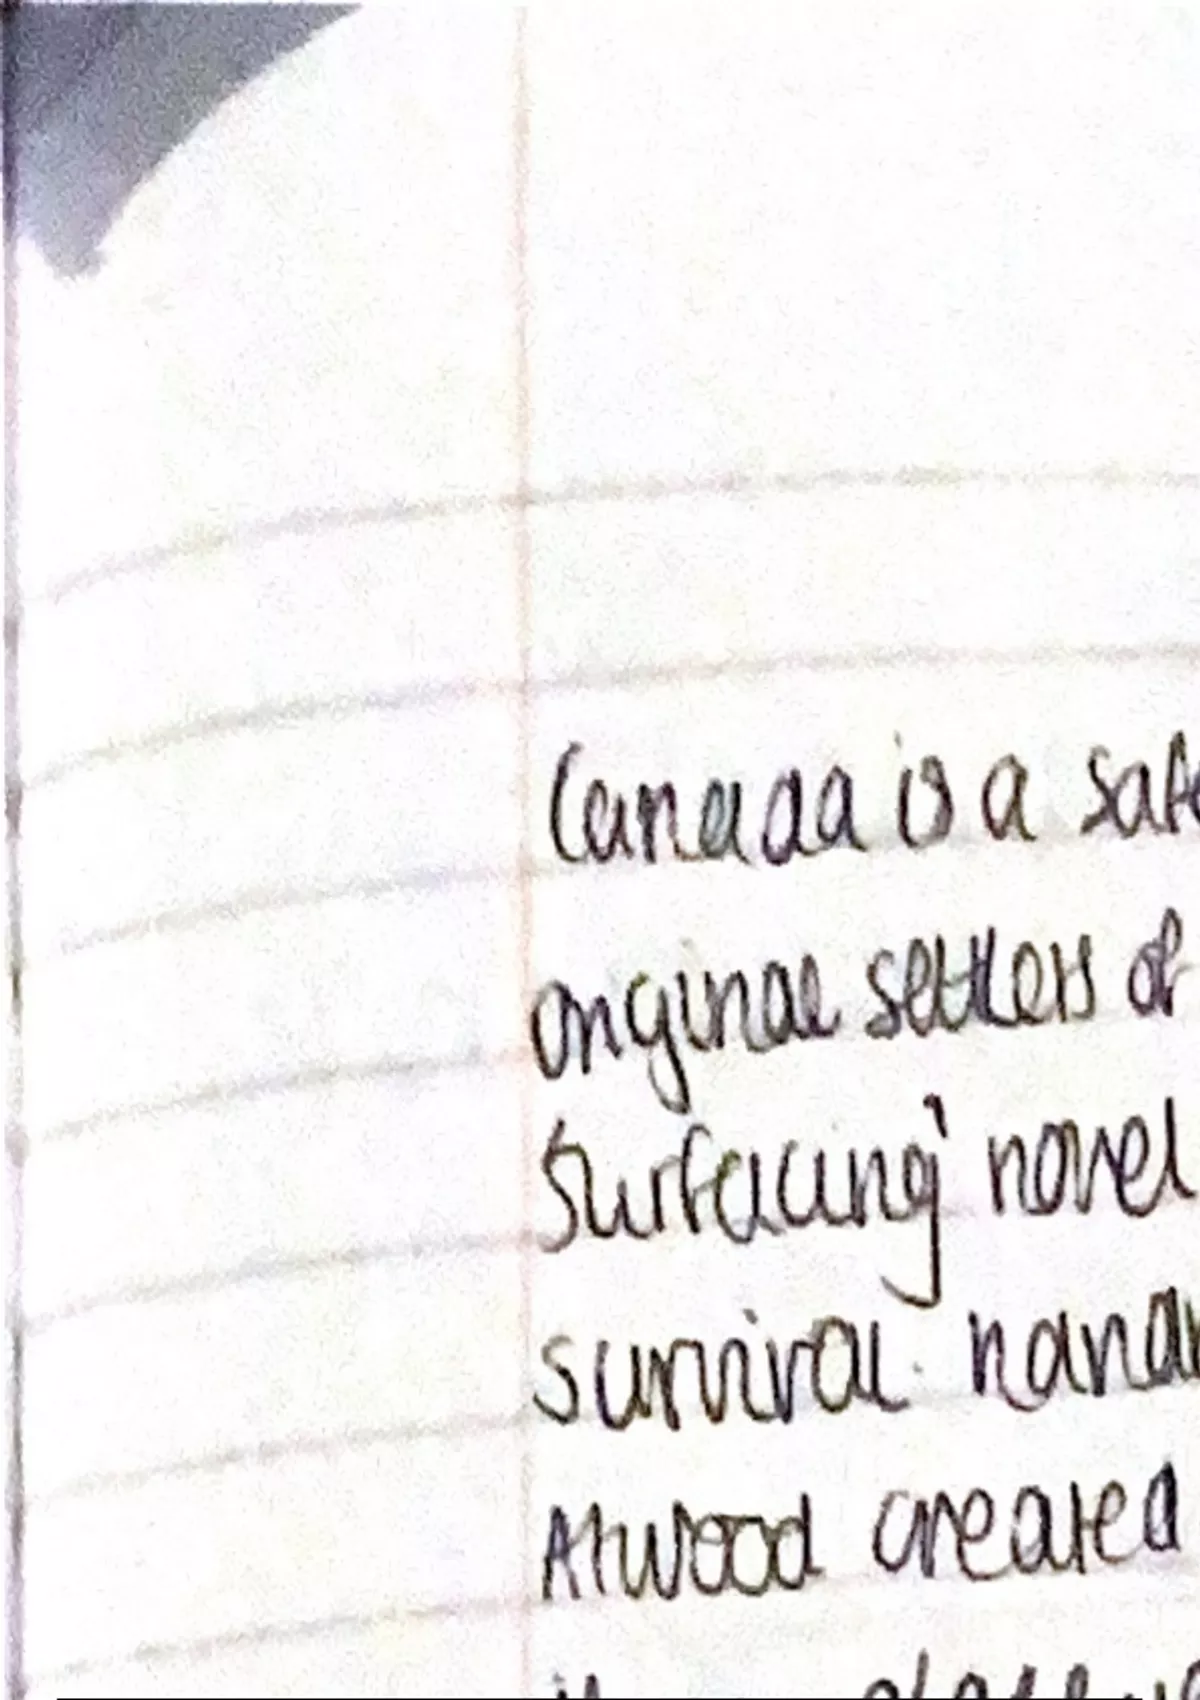 Canada is a safe
original settlers of
Surfacing' novel
survival. narra
Atwood created